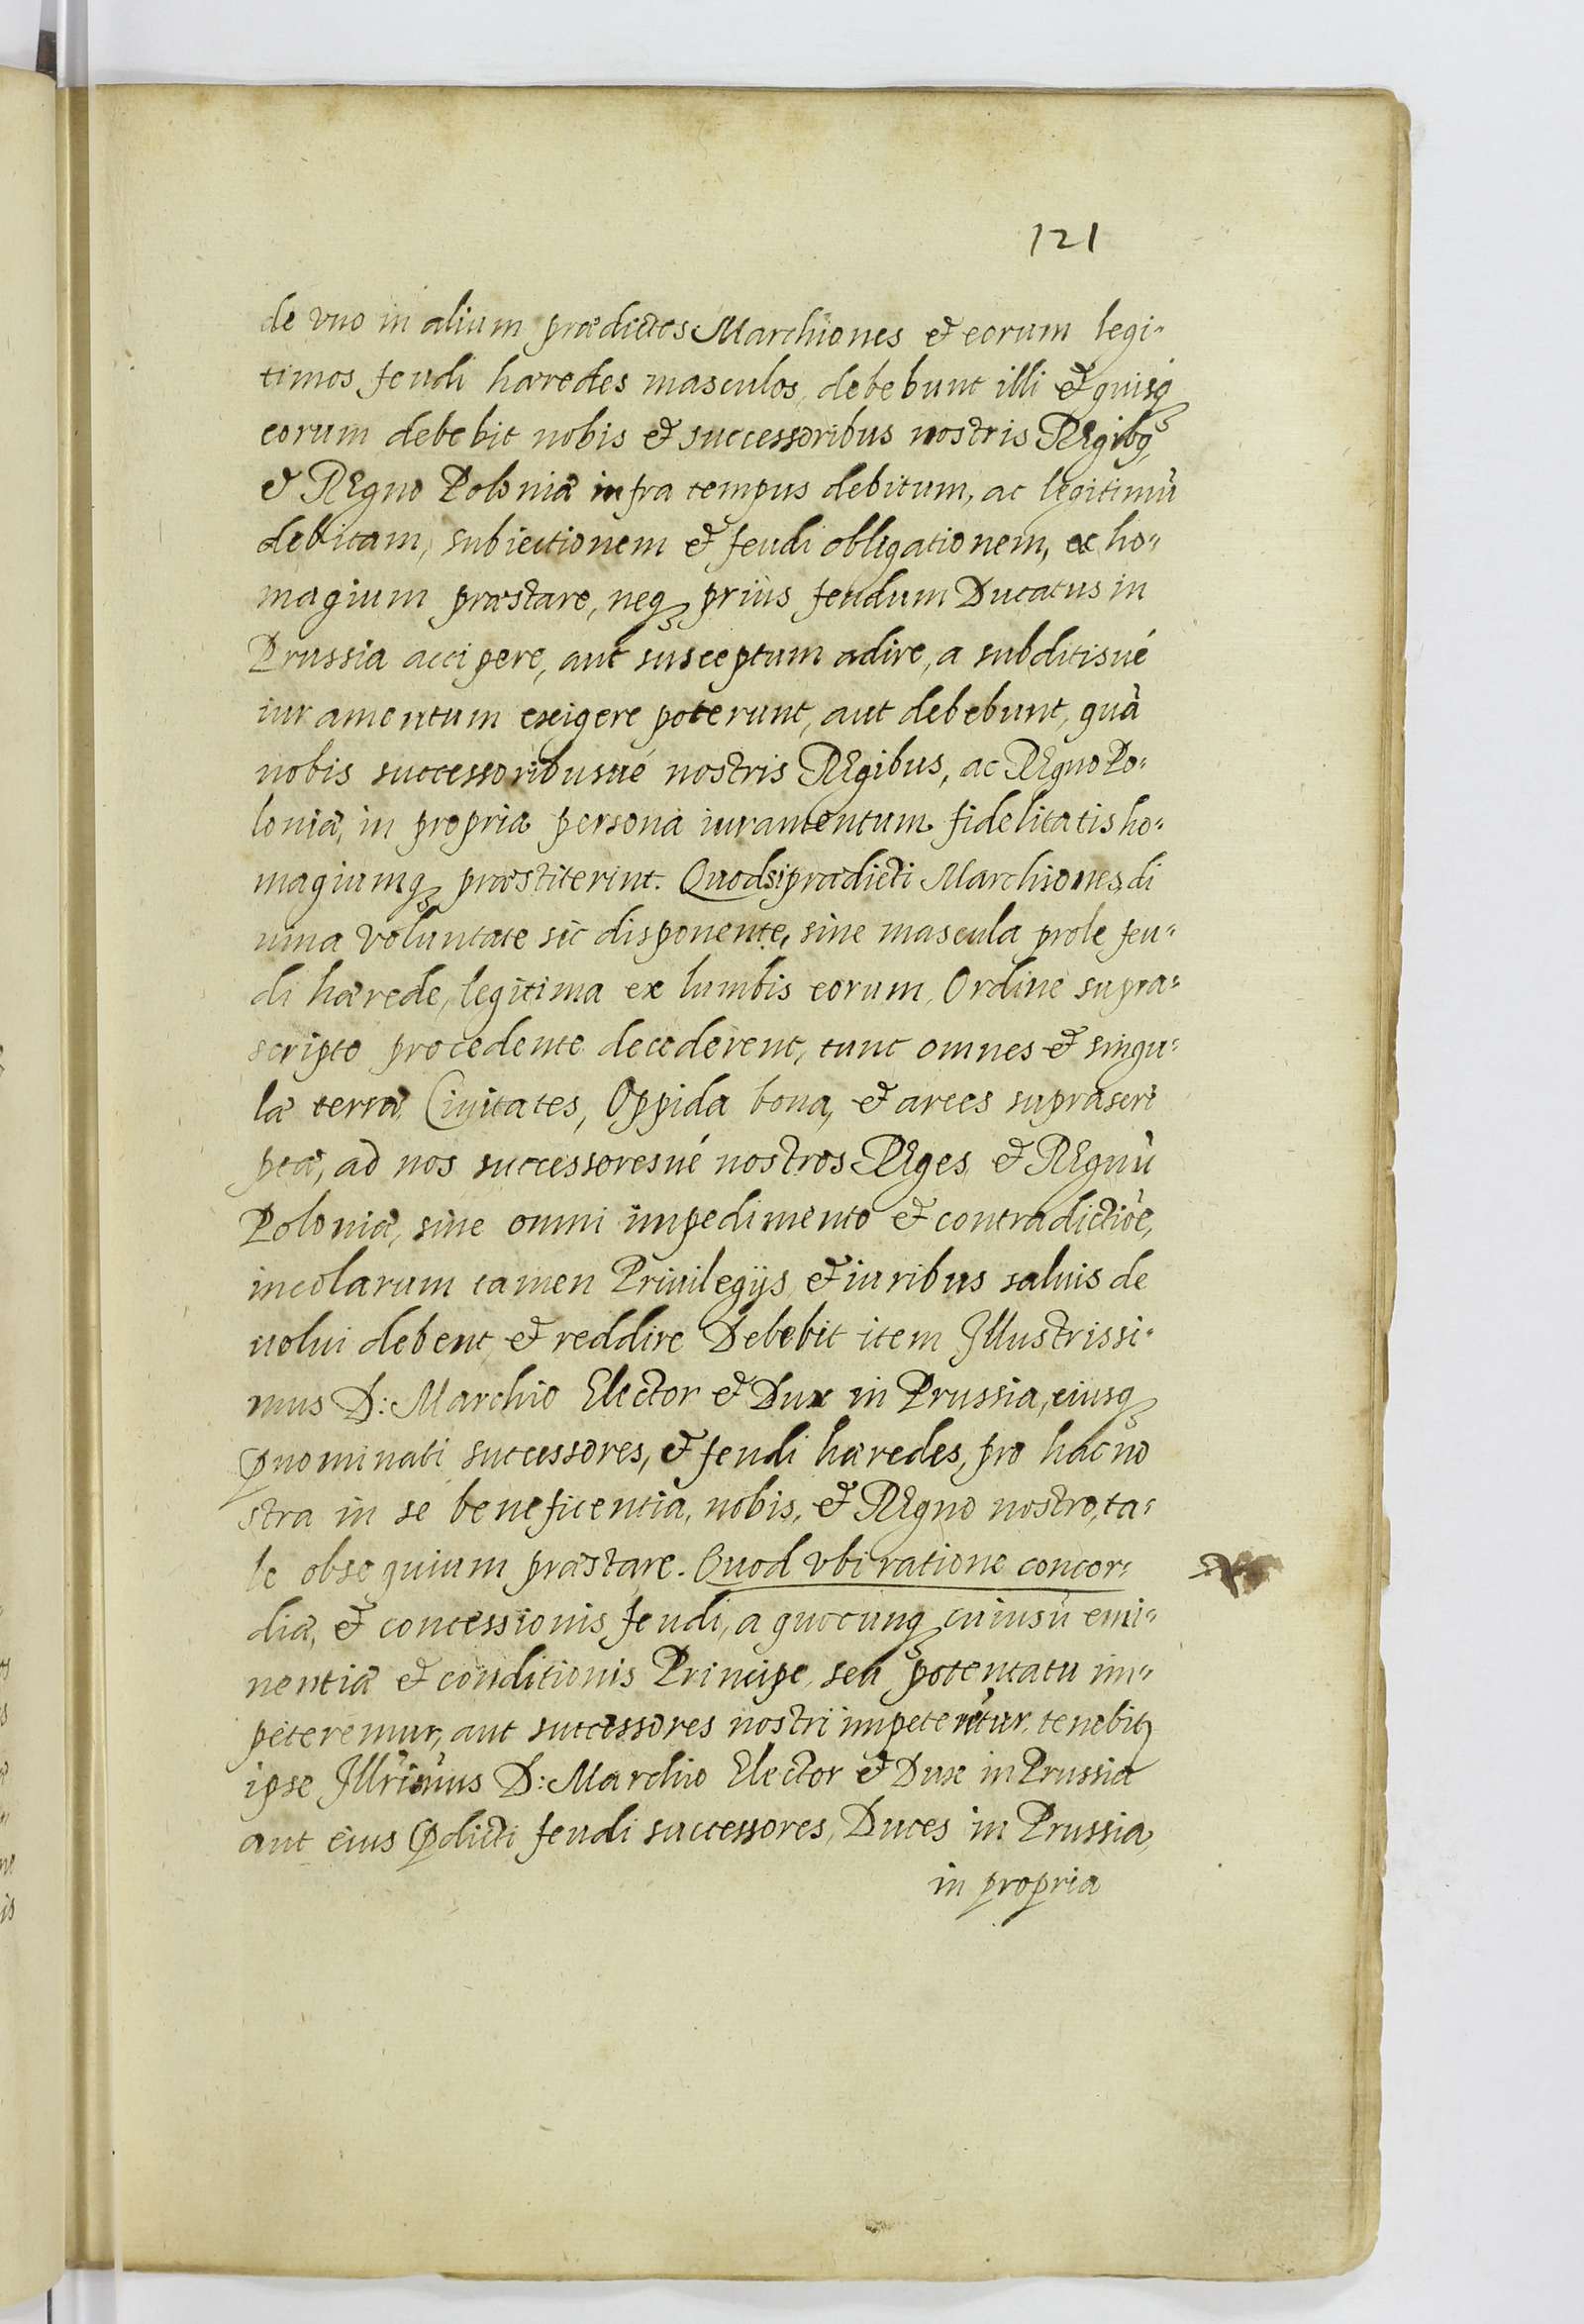 121
de vno in alium prædictos Marchiones et eorum legi-
timos feudi hæredes masculos, debebunt illi et quisq
eorum debebit nobis et successoribus nostris Regibq,
et Regno Poloniæ infra tempus debitum, ac legitimũ
debitam, subiectionem et feudi obligationem, ac ho-
magium præstare, neq prius feudum Ducatus in
Prussia accipere, aut susceptum adire, a subditisué
iuramentum exigere poterunt, aut debebunt, quã
nobis successoribusué nostris Regibus, ac Regno Po-
loniæ, in propria persona iuramentum fidelitatis ho-
magiumq præstiterint. Quodsi prædicti Marchiones di
uina voluntate sic disponente, sine mascula prole feu-
di hærede, legitima ex lumbis eorum, Ordine supra-
scripto procedente decederent, tunc omnes et singu-
læ terræ, Ciuitates, Oppida bona, et arces suprascri
ptæ, ad nos successoresué nostros Reges et Regnũ
Poloniæ, sine omni impedimento et contradictiõe,
incolarum tamen Priuilegijs et iuribus saluis de
uolui debent, et reddire Debebit item Illustrissi-
mus D: Marchio Elector et Dux in Prussia, eiusq
Pnominati successores, et feudi hæredes, pro hac no
stra in se beneficentia, nobis, et Regno nostro, ta-
le obsequium præstare. Quod vbi ratione concor-
diæ, et concessionis feudi, a quocunq cuiusũ emi-
nentiæ et conditionis Principe, seu potentatu im-
peteremur, aut successores nostri impeterẽtur, tenebit
ipse Illr̃imus D: Marchio Elector et Dux in Prussia
aut eius Pdicti feudi successores, Duces in Prussia,
in propria